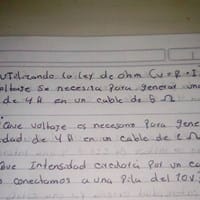 utilizando la ley de ohm (v = R · I
voltaje se necesita para generar una
de 4 A en un cable de 5 Ω
Que voltaje es necesario para gene
dad de 4 A en un cable de 2 Ω
Que Intensidad circulará por un ca
conectamos a una Pila del 10v